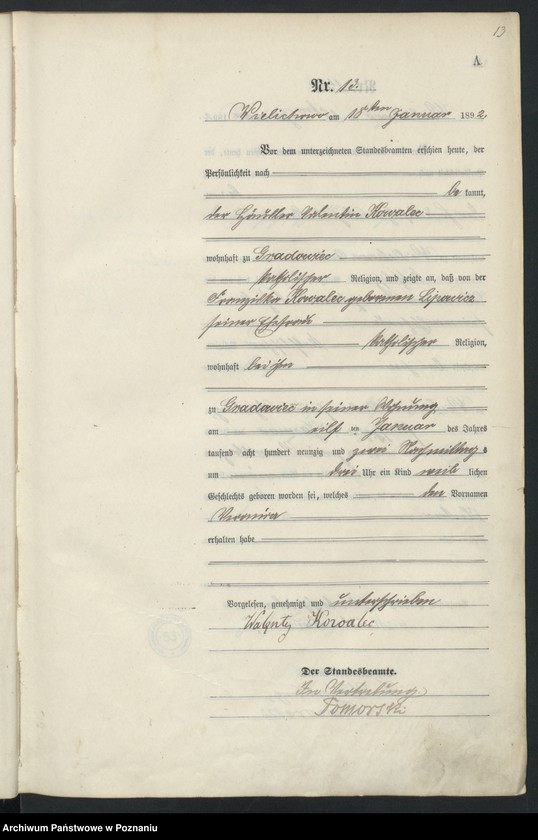 13
A
Nr. 13.
Wielichowo am 18ten Januar 1892.
Vor dem unterzeichneten Standesbeamten erschien heute, der
Persönlichkeit nach
be kannt,
der Häusler Valentin Kowalec
wohnhaft zu Gradowiec
katholischer Religion, und zeigte an, daß von der
Franziska Kowalec geborenen Lipowicz
seiner Ehefrau
katholischer Religion,
wohnhaft bei ihm
zu Gradowiec in seiner Wohnung
am eilf ten Januar des Jahres
tausend acht hundert neunzig und zwei Nachmittag s
um drei Uhr ein Kind weib lichen
Geschlechts geboren worden sei, welches den Vornamen
Veronica
erhalten habe
Vorgelesen, genehmigt und unterschrieben
Walenty Kowalec
Der Standesbeamte.
In Vertretung.
Tomorski
Archiwum Państwowe w Poznaniu